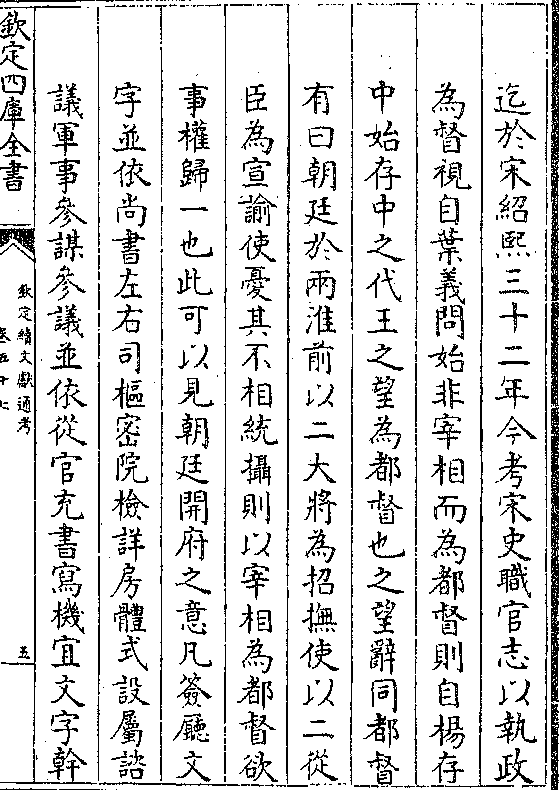 迄於宋紹熙三十二年今考宋史職官志以執政
為督視自葉義問始非宰相而為都督則自楊存
中始存中之代王之望為都督也之望辭同都督
有曰朝廷於兩淮前以二大將為招撫使以二從
臣為宣諭使憂其不相統攝則以宰相為都督欲
事權歸一也此可以見朝廷開府之意凡簽廳文
字並依尚書左右司樞密院檢詳房體式設屬諮
議軍事參謀參議並依從官充書寫機宜文字幹
欽定四庫全書
欽定續文獻通考
卷五十七
五